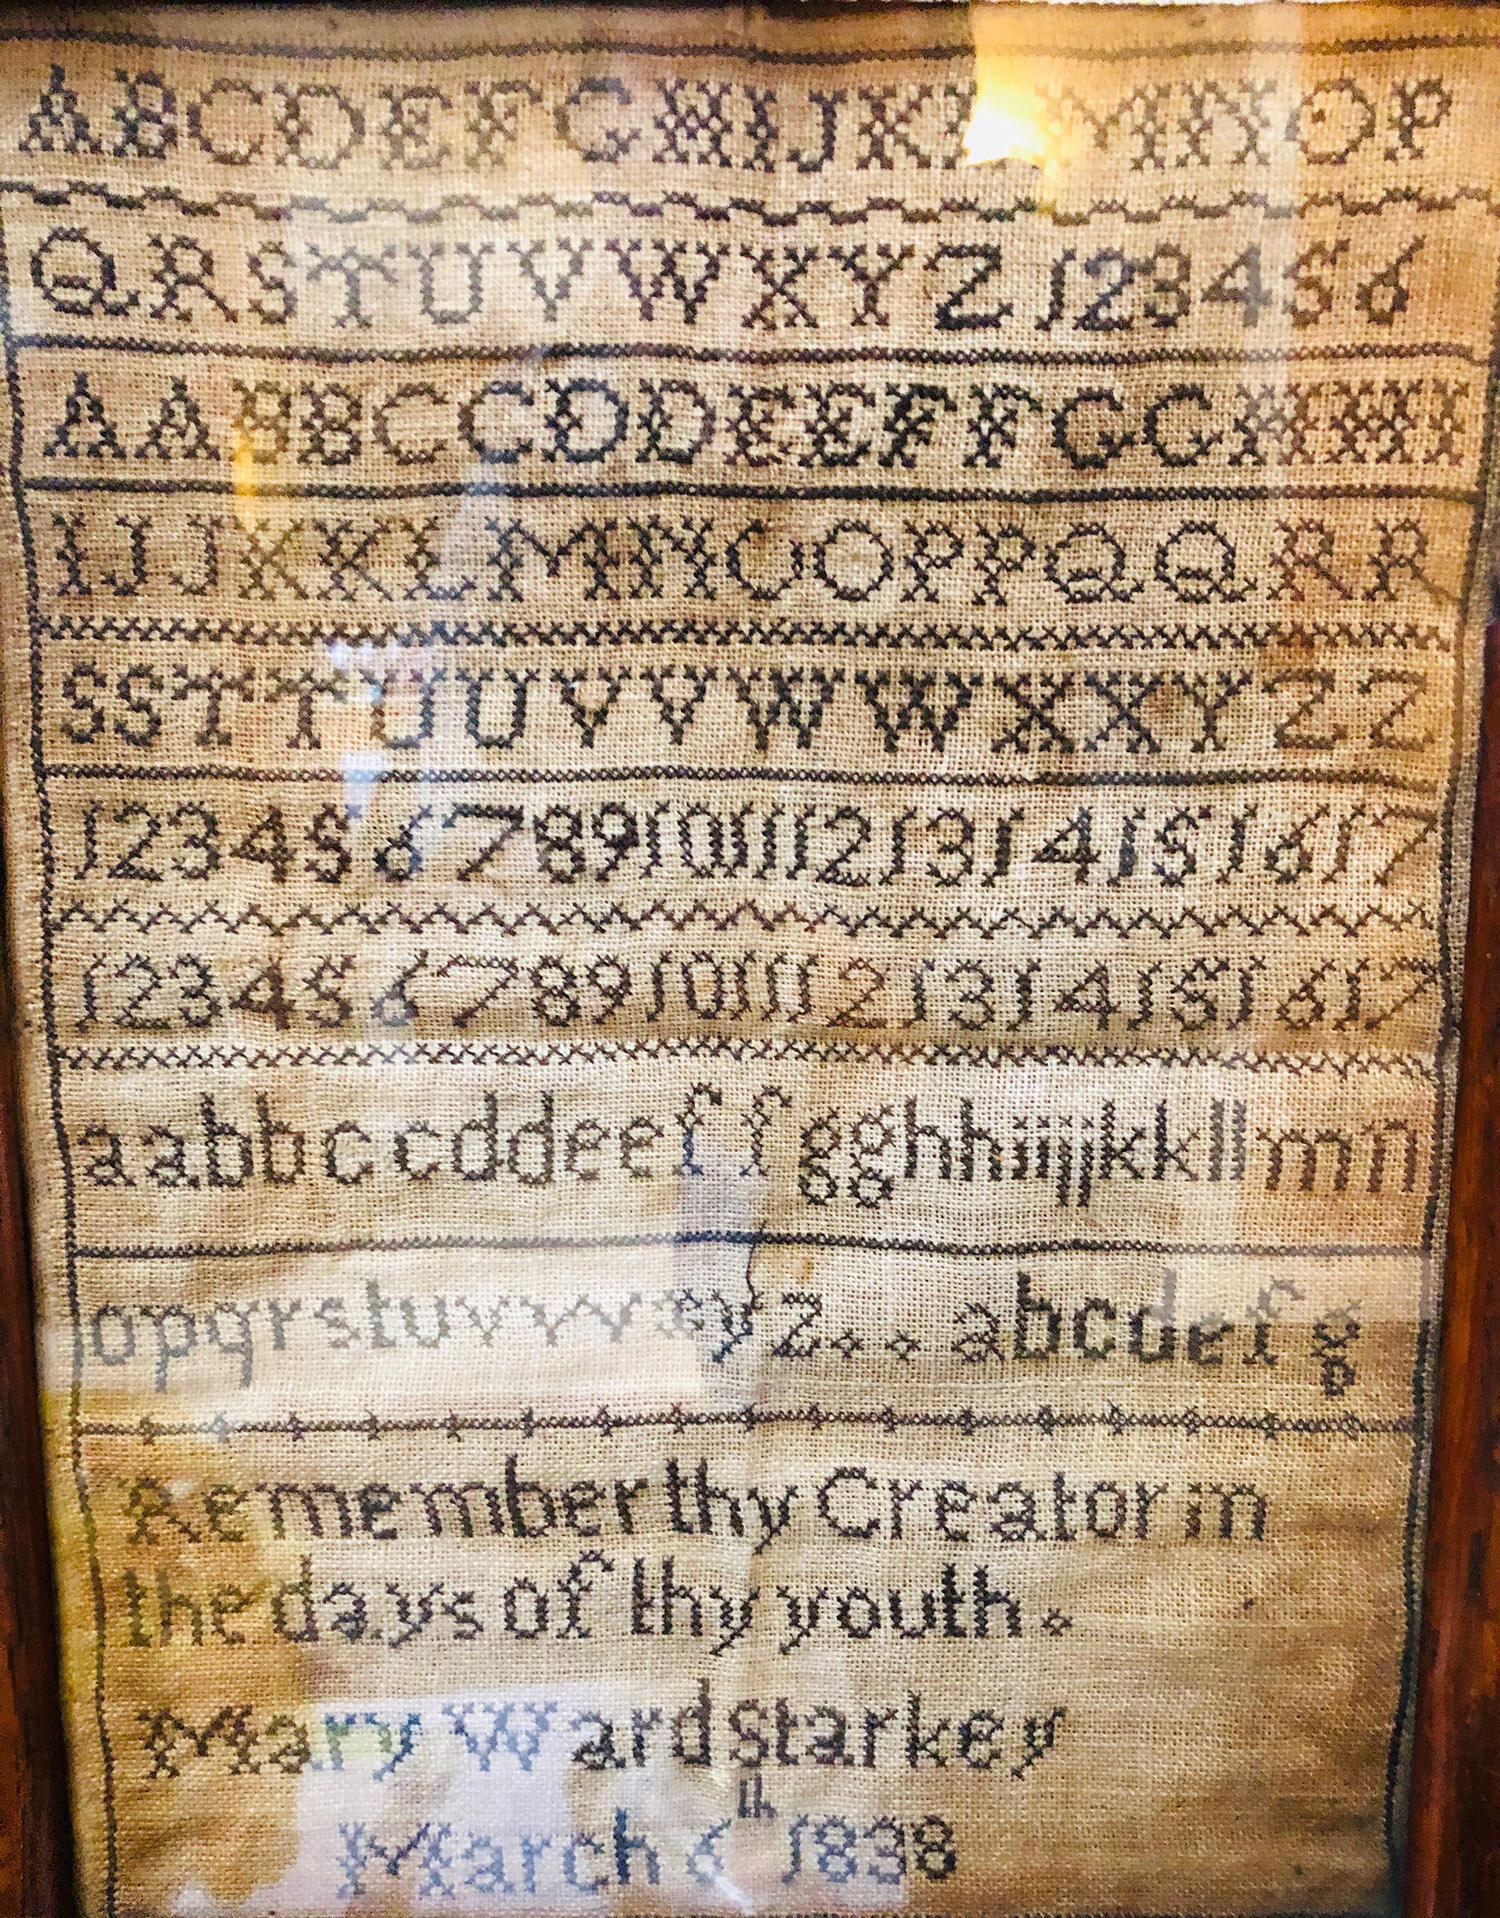 ABCDEFGHIJKLMNOP
QRSTUVWXYZ123456
AABBCCDDEEFFGGHHI
IJJKKLMNOOPPQQRR
SSTTUUVVWWXXYZZ
1234567891011121314151617
1234567891011121314151617
aabbccddeeffgghhiijjkkllmn
opqrstuvwxyz..abcdefg
Remember thy Creator in
the days of thy youth.
Mary Ward Starkey
March 6th 1838